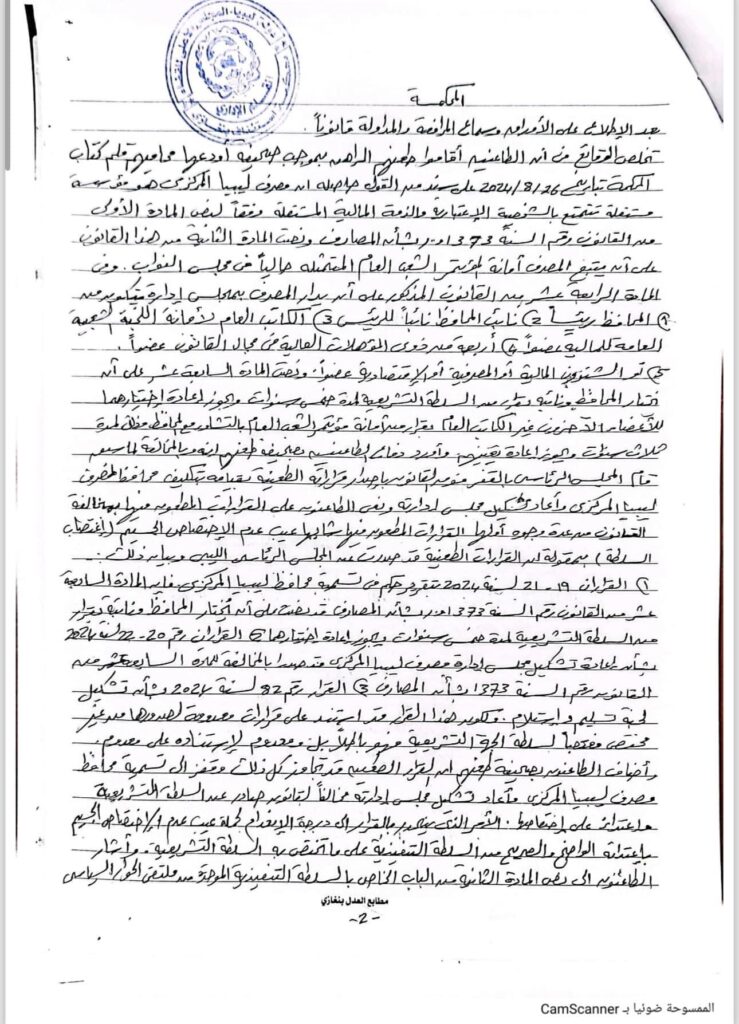 المحكمة
بعد الإطلاع على الأوراق وسماع المرافعة والمداولة قانوناً.
تخلص الوقائع في أن الطاعنين أقاموا طعنهم الراهن بموجب صحيفة أودعها محاميهم قلم كتاب
المحكمة بتاريخ 2024/8/26 على سند من القول حاصله ان مصرف ليبيا المركزي هو مؤسسة
مستقلة تتمتع بالشخصية الإعتبارية والذمة المالية المستقلة وفقاً لنص المادة الأولى
من القانون رقم 1 لسنة 1373 و.ر بشأن المصارف ونصت المادة الثانية من هذا القانون
على أن يتبع المصرف أمانة مؤتمر الشعب العام المتمثلة حالياً في مجلس النواب. وفي
المادة الرابعة عشر من القانون المذكور على أن يدار المصرف بمجلس إدارة يتكون من
1) المحافظ رئيساً 2) نائب المحافظ نائباً للرئيس 3) الكاتب العام لأمانة اللجنة الشعبية
العامة للمالية عضواً 4) أربعة من ذوي المؤهلات العالية في مجال القانون عضواً.
5) أو الشئون المالية أو المصرفية أو الإقتصادية عضواً. ونصت المادة السابعة عشر على أن
يختار المحافظ ونائبه بقرار من السلطة التشريعية لمدة خمس سنوات ويجوز إعادة إختيارهما
للأعضاء الآخرون غير الكاتب العام بقرار من أمانة مؤتمر الشعب العام بالتشاور مع المحافظ وذلك لمدة
ثلاث سنوات ويجوز إعادة تعيينهم. وأورد دفاع الطاعنين بصحيفة طعنهم انه وبالمخالفة لما سبق
قام المجلس الرئاسي بالقفز فوق القانون بإصدار قراراته الطعينة بقيامه بتكليف محافظ لمصرف
ليبيا المركزي وأعاد تشكيل مجلس ادارته ونعى الطاعنون على القرارات المطعون فيها بمخالفة
القانون من عدة وجوه أولها القرارات المطعون فيها شابها عيب عدم الإختصاص الجسيم (إغتصاب
السلطة) بمقولة ان القرارات الطعينة قد صدرت عن المجلس الرئاسي الليبي وبيان ذلك:
1) القراران 19 - 21 لسنة 2024 بتقرير حكم في تسمية محافظ ليبيا المركزي فإن المادة السابعة
عشر من القانون رقم 1 لسنة 1373 و.ر بشأن المصارف قد نصت على أن يختار المحافظ ونائبه بقرار
من السلطة التشريعية لمدة خمس سنوات ويجوز إعادة إختيارهما 2) القراران رقم 20-22 لسنة 2024
بشأن إعادة تشكيل مجلس إدارة مصرف ليبيا المركزي قد صدرا بالمخالفة للمادة السابعة عشر من
القانون رقم 1 لسنة 1373 بشأن المصارف 3) القرار رقم 82 لسنة 2024 بشأن تشكيل
لجنة تسليم وإستلام. ولكون هذا القرار قد استند على قرارات معدومة لصدورها من غير
مختص ومغتصباً لسلطة الجهة التشريعية فهو باطلاً بل ومعدوم لإستناده على معدوم.
وأضاف الطاعنون بصحيفة طعنهم ان القرار الطعين قد تجاوز كل ذلك وقفز الى تسمية محافظ
مصرف ليبيا المركزي وأعاد تشكيل مجلس إدارته مخالفاً لقانون صادر عن السلطة التشريعية
وإعتدائه على إختصاصها. الأمر الذي ينحدر بالقرار الى درجة الإنعدام لحملة عيب عدم الإختصاص الجسيم
بإعتدائه الواضح والصريح من السلطة التنفيذية على ما تختص به السلطة التشريعية. وأشار
الطاعنون الى نص المادة الثانية من الباب الخاص بالسلطة التنفيذية الموحدة من ملتقى الحوار السياسي
مطابع العدل بنغازي
-2-
الممسوحة ضوئيا بـ CamScanner